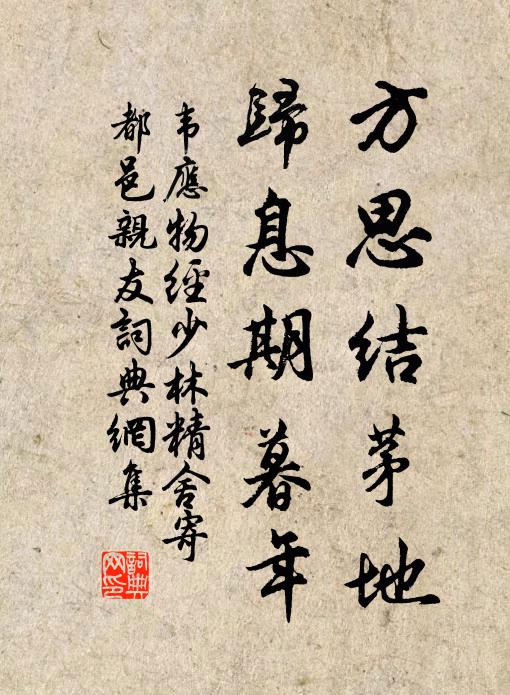 方思结茅地
歸息期暮年
韦應物經少林精舍寄
都邑親友詞典網集
詞典
网印